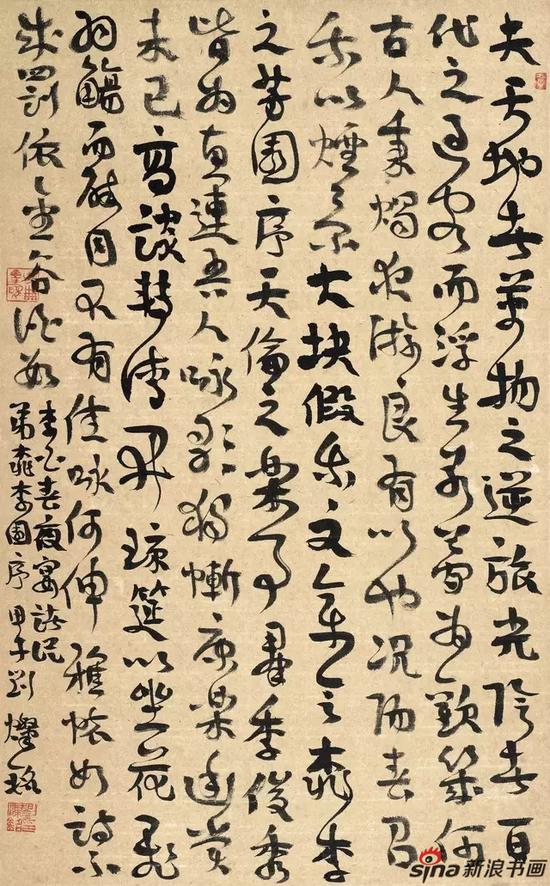 夫天地者萬物之逆旅光陰者百
代之過客而浮生若夢為歡幾何
古人秉燭夜游良有以也况陽春召
我以煙景大块假我文章會桃李
之芳園序天倫之樂事群季俊秀
皆為惠連吾人咏歌獨慚康樂幽賞
未已高談轉清開琼筵以坐花飛
羽觴而醉月不有佳咏何伸雅怀如詩不
成罰依金谷酒數
李白春夜宴諸從
弟桃李園序 甲子 劉燦銘
sina 新浪书画